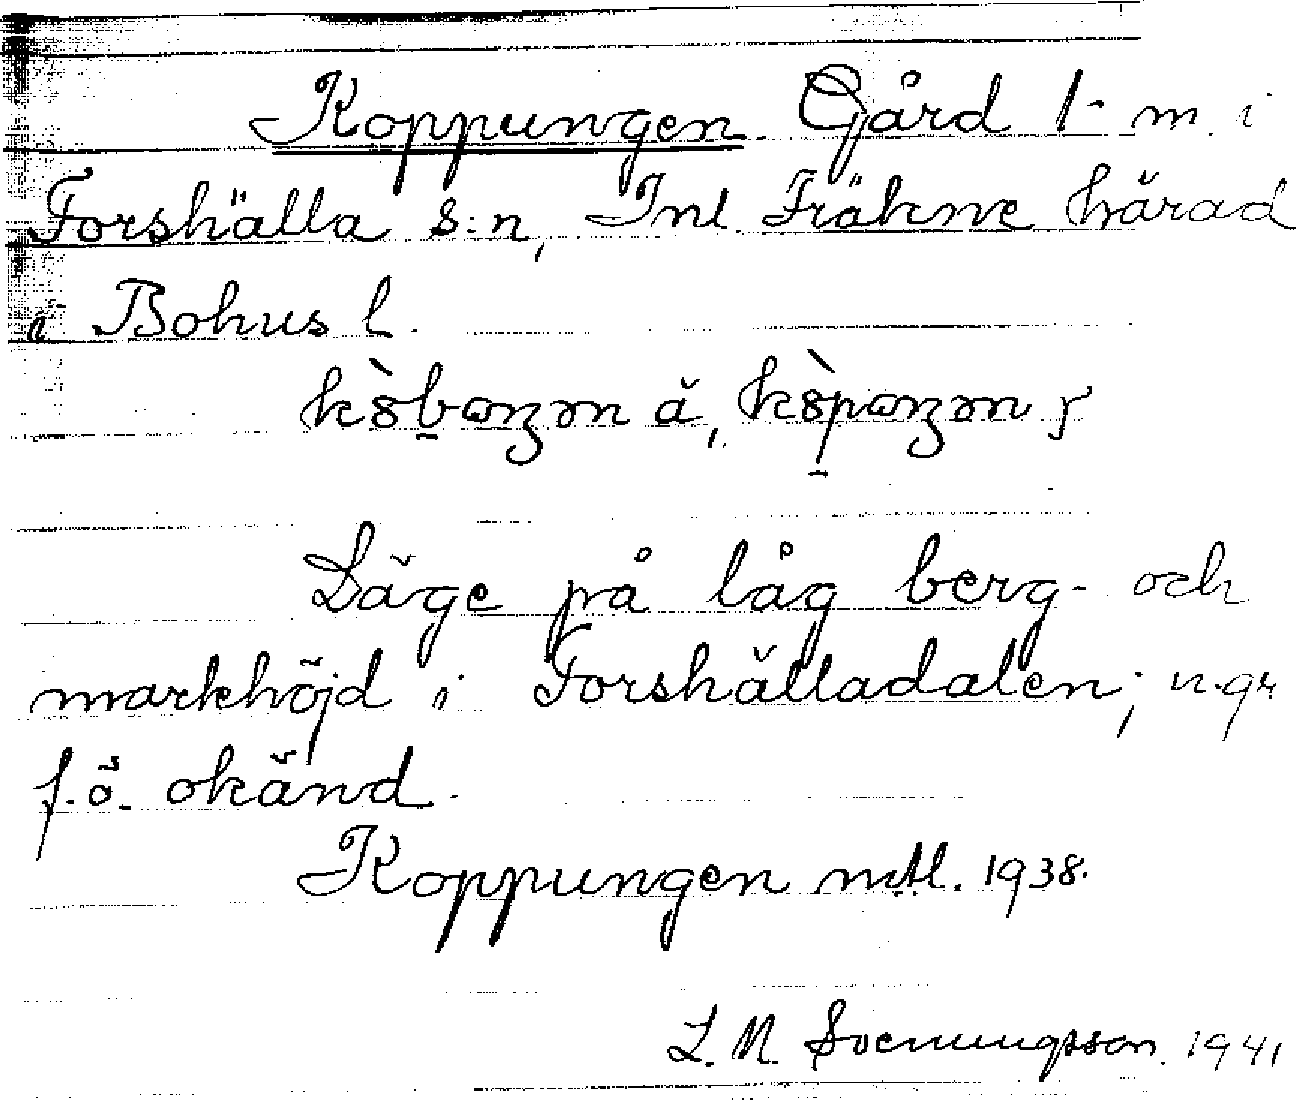 Koppungen Gård 1 m. i
Forshälla s:n, Inl. Fräkne härad
i Bohus l.
Läge på låg berg- och
markhöjd i Forshälladalen; u.gr.
f.ö. okänd.
Koppungen mtl. 1938.
L. M. Svenungsson 1941